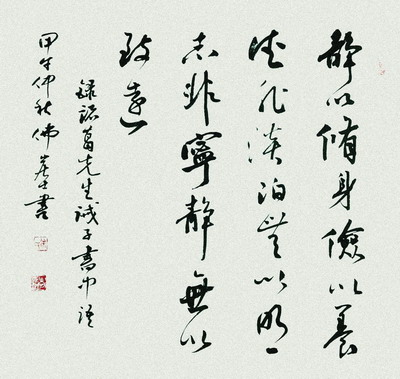 靜以脩身儉以養
德非淡泊無以明
志非寧靜無以
致遠
錄諸葛先生誡子書中語
甲午仲秋佛崖書